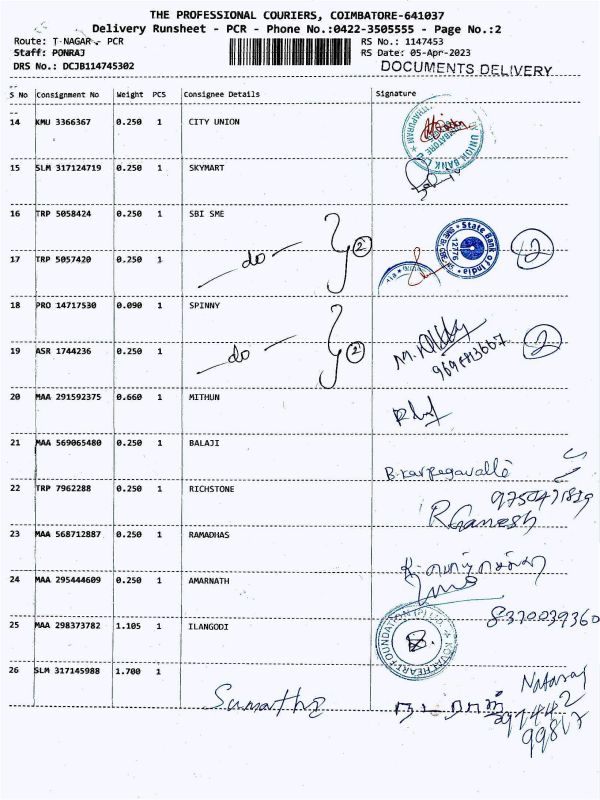 THE PROFESSIONAL COURIERS, COIMBATORE-641037
Delivery Runsheet - PCR - Phone No.:0422-3505555 - Page No.:2
Route: T-NAGAR - PCR
RS No.: 1147453
Staff: PONRAJ
RS Date: 05-Apr-2023
DRS No.: DCJB114745302
DOCUMENTS DELIVERY
S No Consignment No Weight PCS Consignee Details Signature
14 KMU 3366367 0.250 1 CITY UNION
15 SLM 317124719 0.250 1 SKYMART
16 TRP 5058424 0.250 1 SBI SME
17 TRP 5057420 0.250 1 — do — 2
State Bank of India
12776
2
18 PRO 14717530 0.090 1 SPINNY
19 ASR 1744236 0.250 1 — do — 2
2
20 MAA 291592375 0.660 1 MITHUN
21 MAA 569065480 0.250 1 BALAJI
B. Karpagavalli
22 TRP 7962288 0.250 1 RICHSTONE
R Ganesh
23 MAA 568712887 0.250 1 RAMADHAS
24 MAA 295444609 0.250 1 AMARNATH
25 MAA 298373782 1.105 1 ILANGODI
8370039360
26 SLM 317145988 1.700 1 Sumathi
Nataraj